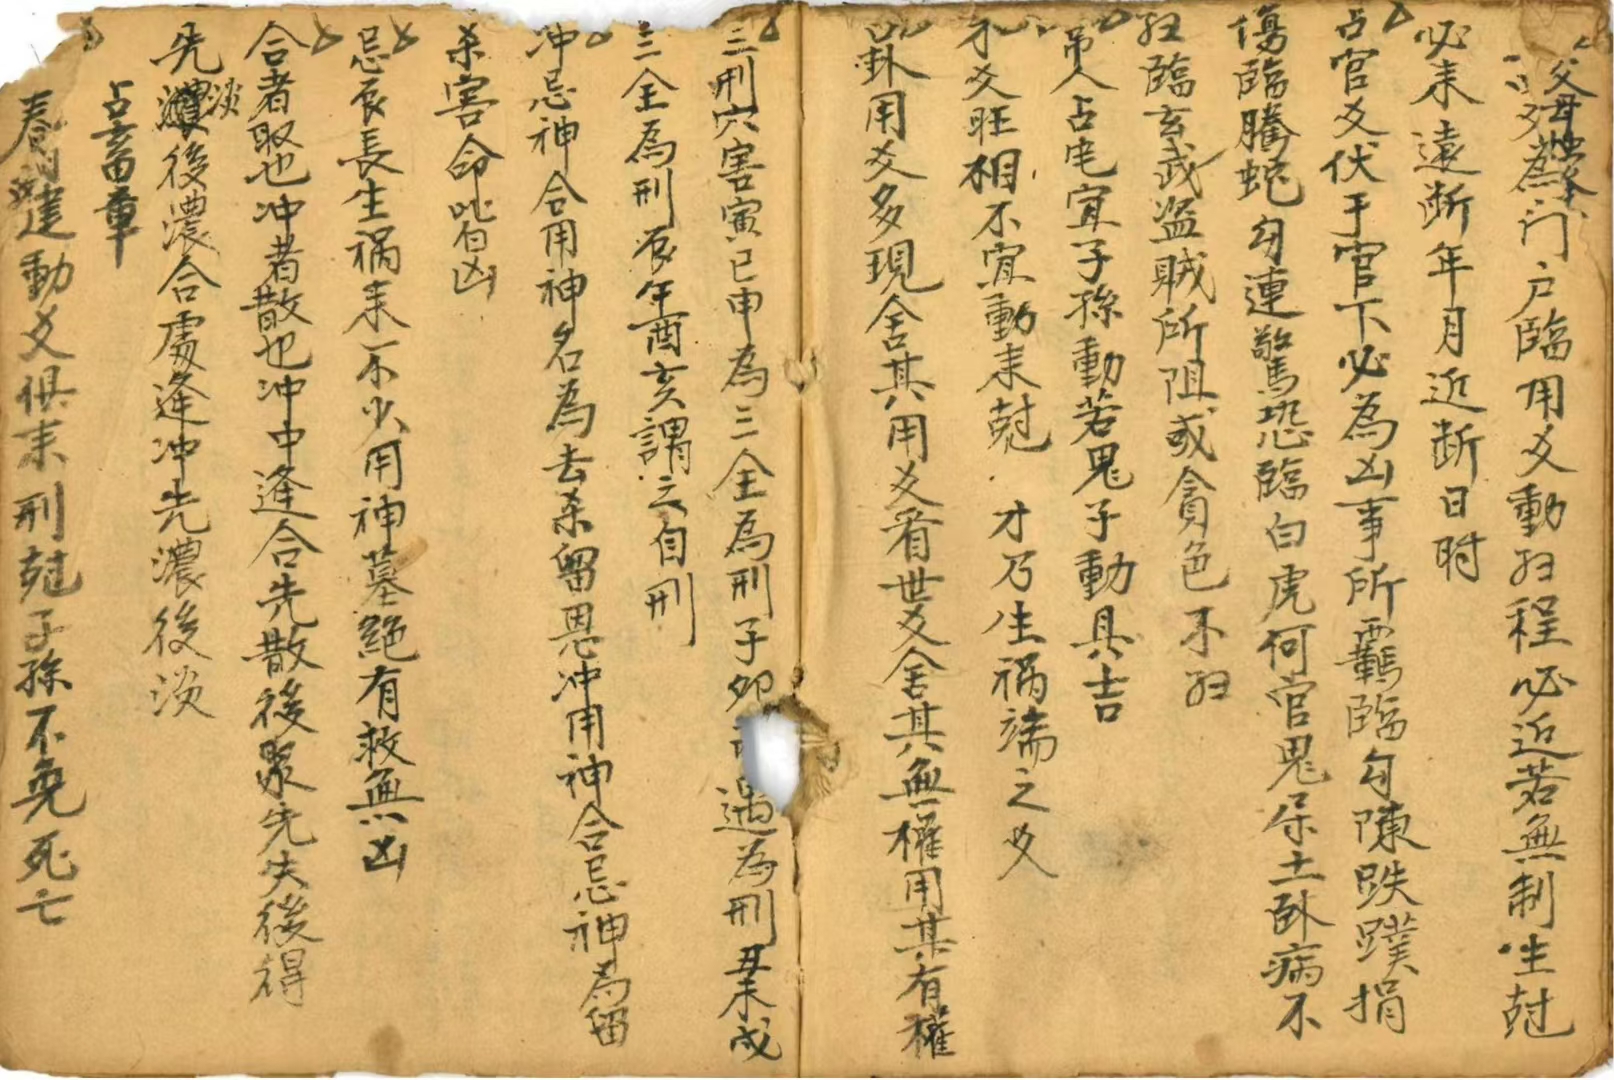 父爻為门户臨用爻動归程必近若無制生尅
必来遠断年月近断日时
占官爻伏于官下必為凶事所羈臨勾陳跌蹼捐
傷臨騰蛇勾連驚恐臨白虎何官鬼屬土卧病不
归臨玄武盗贼所阻或貪色不归
吊人占宅宜子孫動若鬼子動具吉
才爻旺相不宜動来尅才乃生禍端之爻
卦用爻多現舍其用爻看世爻舍其無權用其有權
三刑六害寅巳申為三全為刑子卯遇為刑丑未戌
三全為刑辰午酉亥謂之自刑
冲忌神合用神名為去杀留恩冲用神合忌神為留
杀害命皆凶
忌辰長生禍来不少用神墓絕有救無凶
合者聚也冲者散也冲中逢合先散後聚先失後得
先淡後濃合處逢冲先濃後淡
占畜章
春建動爻俱来刑尅子孫不免死亡